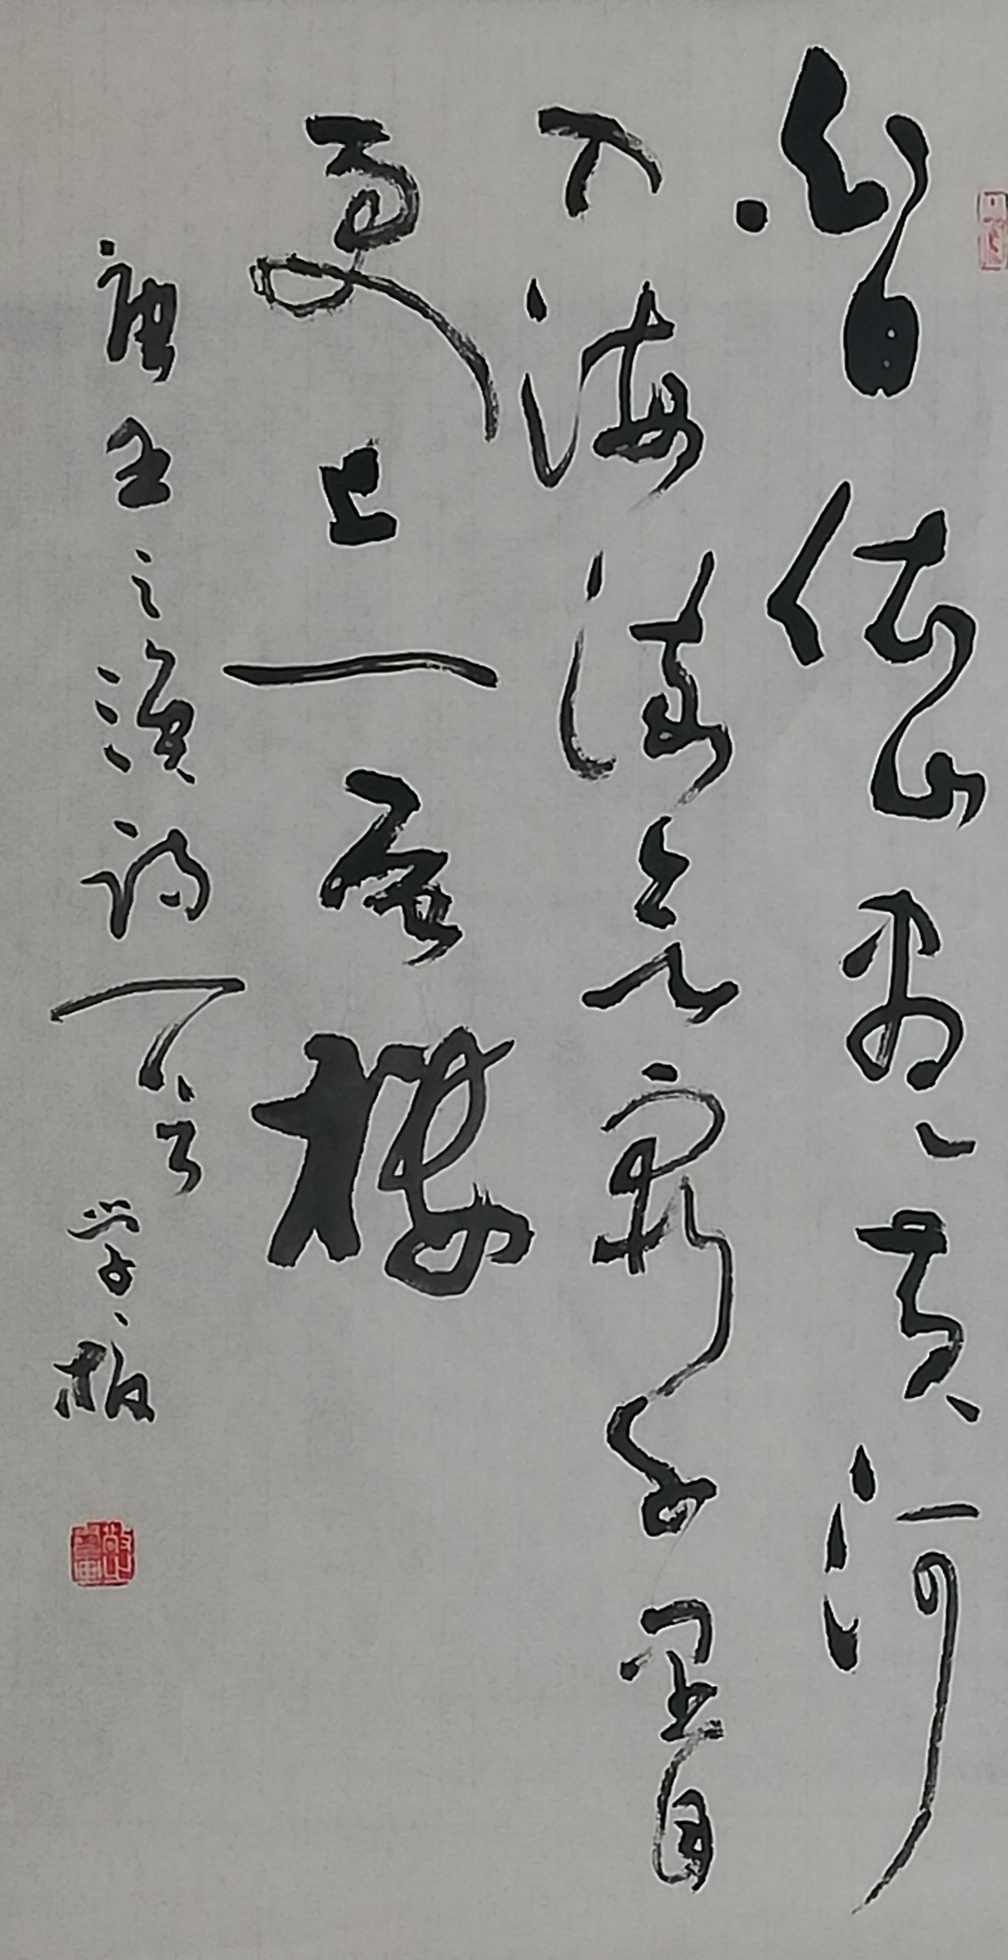 白日依山尽黄河
入海流欲穷千里目
更上一层楼
唐王之涣诗